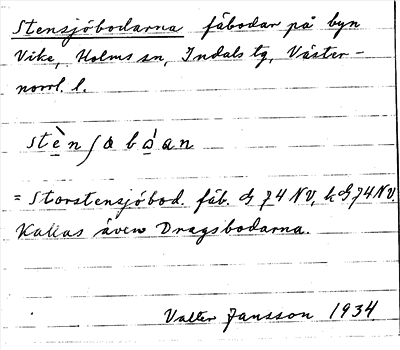 Stensjöbodarna fäbodar på byn
Vike, Holms sn, Indals tg, Väster-
norrl. l.
stènʃobòan
= Storstensjöbod. fäb. G 74 NV, kG 74 NV.
Kallas även Dragsbodarna.
Valter Jansson 1934